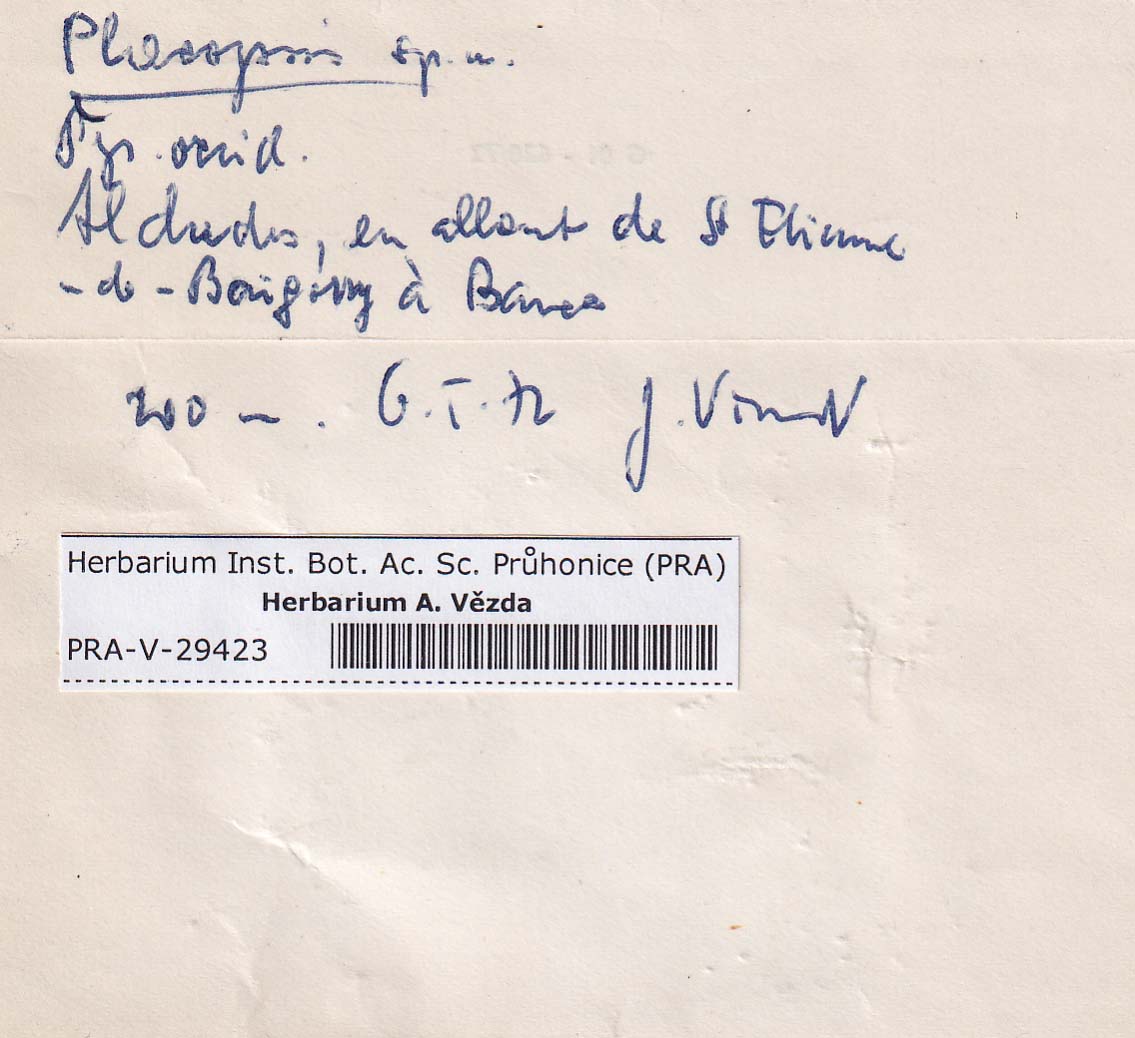 sp. n.
Pyr. occid.
Aldudes, en allant de St Etienne
-de-Baïgorry à Banca
200 m. 6.I.72 J. Vivant
Herbarium Inst. Bot. Ac. Sc. Průhonice (PRA)
Herbarium A. Vězda
PRA-V-29423